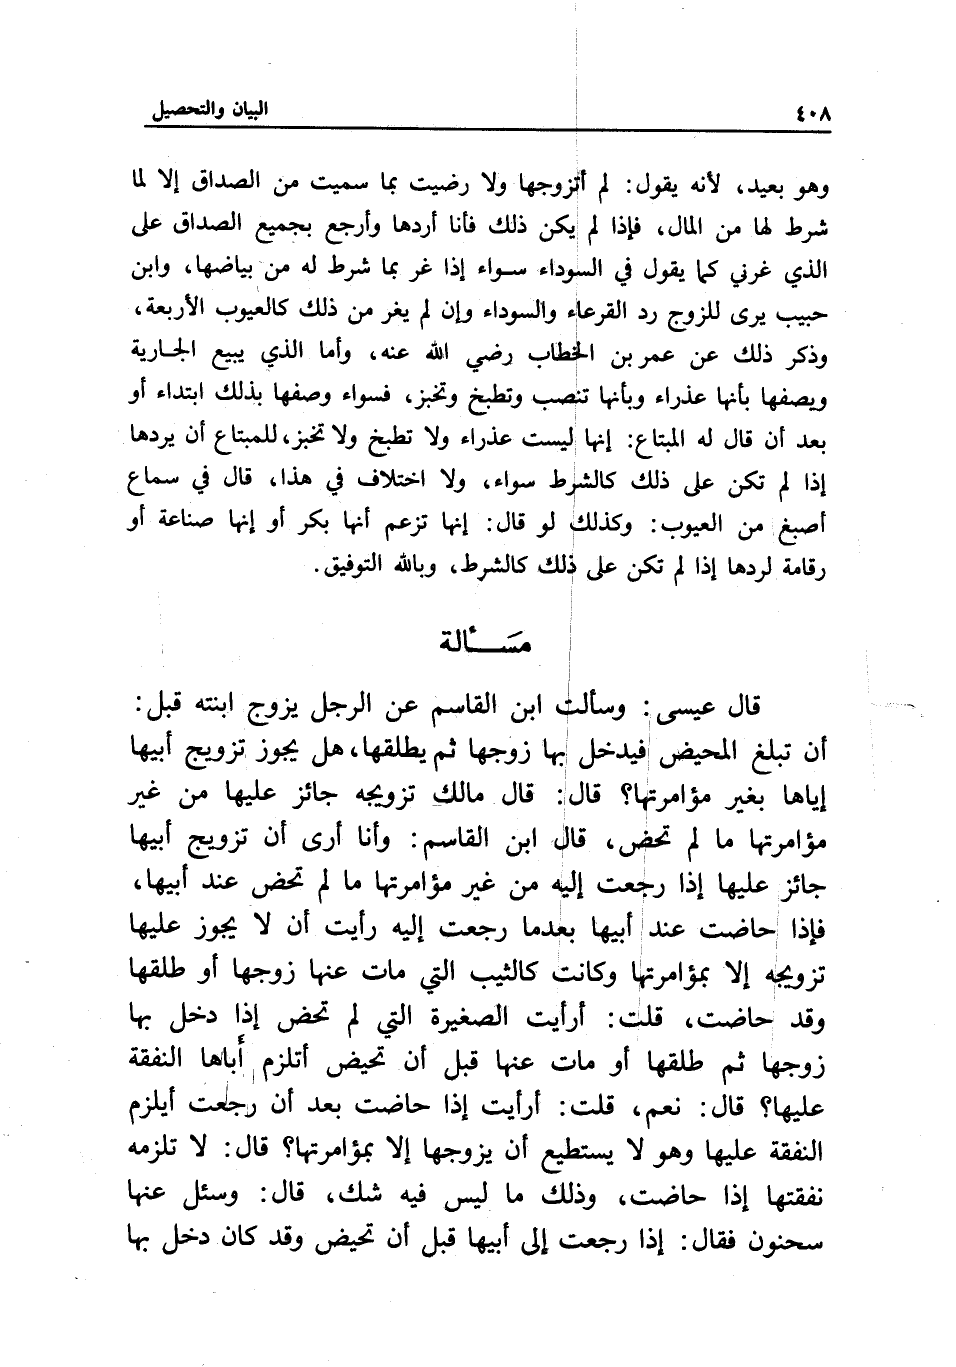 ٤٠٨ البيان والتحصيل
وهو بعيد، لأنه يقول: لم أتزوجها ولا رضيت بما سميت من الصداق إلا لما
شرط لها من المال، فإذا لم يكن ذلك فأنا أردها وأرجع بجميع الصداق على
الذي غرني كما يقول في السوداء سواء إذا غر بما شرط له من بياضها، وابن
حبيب يرى للزوج رد القرعاء والسوداء وإن لم يغر من ذلك كالعيوب الأربعة،
وذكر ذلك عن عمر بن الخطاب رضي الله عنه، وأما الذي يبيع الجارية
ويصفها بأنها عذراء وبأنها تنصب وتطبخ وتخبز، فسواء وصفها بذلك ابتداء أو
بعد أن قال له المبتاع: إنها ليست عذراء ولا تطبخ ولا تخبز، للمبتاع أن يردها
إذا لم تكن على ذلك كالشرط سواء، ولا اختلاف في هذا، قال في سماع
أصبغ من العيوب: وكذلك لو قال: إنها تزعم أنها بكر أو إنها صناعة أو
رقامة لردها إذا لم تكن على ذلك كالشرط، وبالله التوفيق.
مَســألة
قال عيسى: وسألت ابن القاسم عن الرجل يزوج ابنته قبل:
أن تبلغ المحيض فيدخل بها زوجها ثم يطلقها، هل يجوز تزويج أبيها
إياها بغير مؤامرتها؟ قال: قال مالك تزويجه جائز عليها من غير
مؤامرتها ما لم تحض، قال ابن القاسم: وأنا أرى أن تزويج أبيها
جائز عليها إذا رجعت إليه من غير مؤامرتها ما لم تحض عند أبيها،
فإذا حاضت عند أبيها بعدما رجعت إليه رأيت أن لا يجوز عليها
تزويجه إلا بمؤامرتها وكانت كالثيب التي مات عنها زوجها أو طلقها
وقد حاضت، قلت: أرأيت الصغيرة التي لم تحض إذا دخل بها
زوجها ثم طلقها أو مات عنها قبل أن تحيض أتلزم أباها النفقة
عليها؟ قال: نعم، قلت: أرأيت إذا حاضت بعد أن رجعت أيلزم
النفقة عليها وهو لا يستطيع أن يزوجها إلا بمؤامرتها؟ قال: لا تلزمه
نفقتها إذا حاضت، وذلك ما ليس فيه شك، قال: وسئل عنها
سحنون فقال: إذا رجعت إلى أبيها قبل أن تحيض وقد كان دخل بها